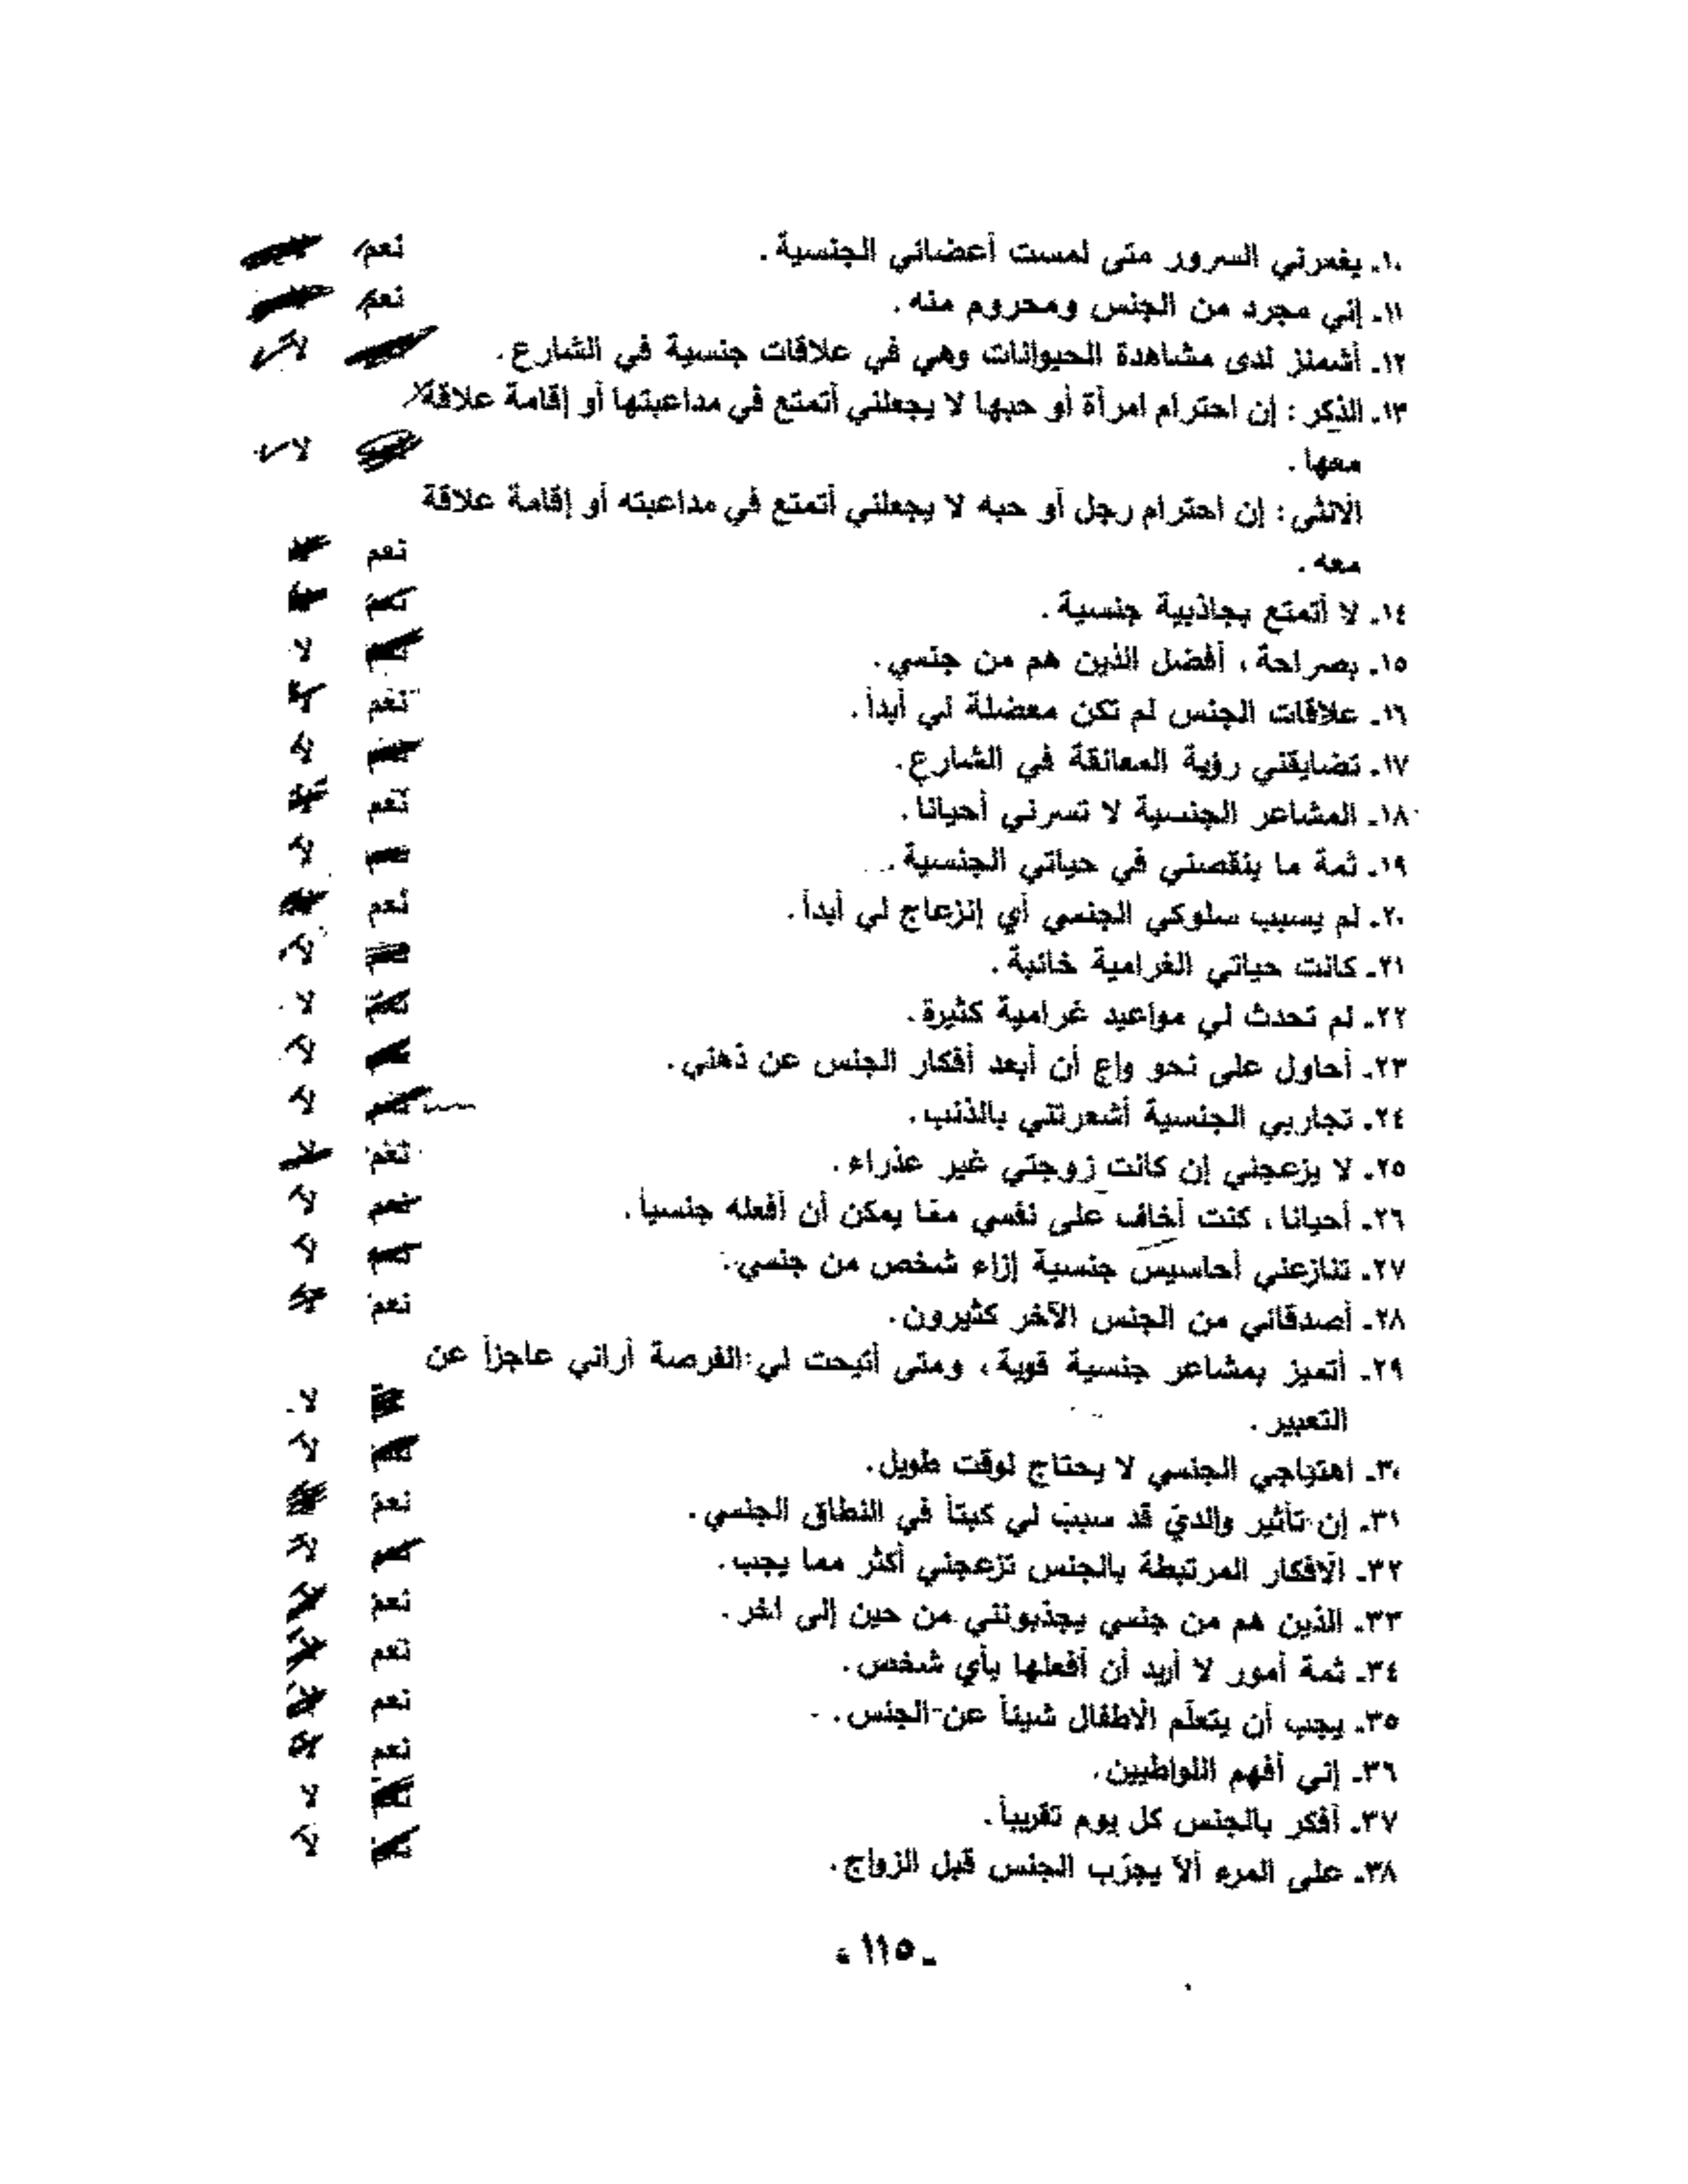 ١٠ـ يغمرني السرور متى لمست أعضائي الجنسية . نعم
١١ـ إني مجرد من الجنس ومحروم منه . نعم
١٢ـ أشمئز لدى مشاهدة الحيوانات وهي في علاقات جنسية في الشارع . لا
١٣ـ الذكر : إن احترام امرأة أو حبها لا يجعلني أتمتع في مداعبتها أو إقامة علاقة
معها . لا
الأنثى : إن احترام رجل أو حبه لا يجعلني أتمتع في مداعبته أو إقامة علاقة
معه . نعم
١٤ـ لا أتمتع بجاذبية جنسية . نعم
١٥ـ بصراحة ، أفضل الذين هم من جنسي . لا
١٦ـ علاقات الجنس لم تكن معضلة لي أبداً . نعم لا
١٧ـ تضايقني رؤية المعانقة في الشارع . لا
١٨ـ المشاعر الجنسية لا تسرني أحيانا . نعم
١٩ـ ثمة ما ينقصني في حياتي الجنسية . نعم لا
٢٠ـ لم يسبب سلوكي الجنسي أي إنزعاج لي أبداً . نعم
٢١ـ كانت حياتي الغرامية خائبة . لا
٢٢ـ لم تحدث لي مواعيد غرامية كثيرة . نعم لا
٢٣ـ أحاول على نحو واع أن أبعد أفكار الجنس عن ذهني . لا
٢٤ـ تجاربي الجنسية أشعرتني بالذنب . نعم لا
٢٥ـ لا يزعجني إن كانت زوجتي غير عذراء . نعم لا
٢٦ـ أحيانا ، كنت أخاف على نفسي ممّا يمكن أن أفعله جنسياً . نعم لا
٢٧ـ تنازعني أحاسيس جنسية إزاء شخص من جنسي . نعم لا
٢٨ـ أصدقائي من الجنس الآخر كثيرون . نعم لا
٢٩ـ أتميز بمشاعر جنسية قوية ، ومتى أتيحت لي الفرصة أراني عاجزاً عن
التعبير . لا
٣٠ـ اهتياجي الجنسي لا يحتاج لوقت طويل . نعم لا
٣١ـ إن تأثير والديّ قد سبب لي كبتاً في النطاق الجنسي . نعم
٣٢ـ الأفكار المرتبطة بالجنس تزعجني أكثر مما يجب . نعم لا
٣٣ـ الذين هم من جنسي يجذبونني من حين إلى آخر . نعم
٣٤ـ ثمة أمور لا أريد أن أفعلها بأي شخص . نعم
٣٥ـ يجب أن يتعلّم الأطفال شيئاً عن الجنس . نعم لا
٣٦ـ إني أفهم اللواطيين . نعم لا
٣٧ـ أفكر بالجنس كل يوم تقريباً . لا
٣٨ـ على المرء ألا يجرّب الجنس قبل الزواج . لا
ـ ١١٥ ـ